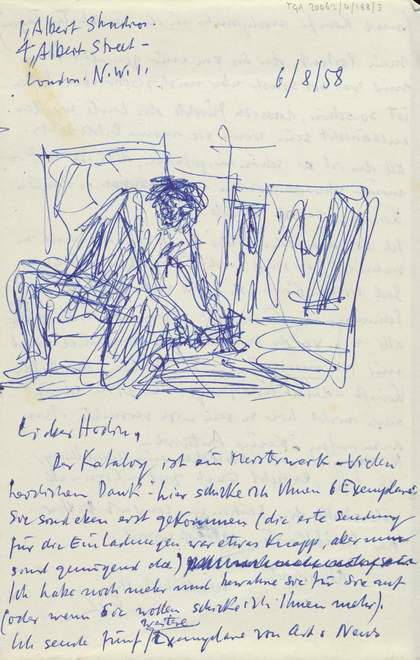 TGA 20062/4/188/3
1, Albert Studios.
4, Albert Street -
London. N.W.1.
6/8/58
Lieber Hodin,
Der Katalog ist ein Meisterwerk - Vielen
herzlichen Dank - hier schicke ich Ihnen 6 Exemplare
Sie sind eben erst gekommen (die erste Sendung
für die Einladungen war etwas knapp, aber nun
sind genügend da)
Ich habe noch mehr und bewahre Sie für Sie auf
(oder wenn Sie wollen schicke ich Ihnen mehr).
weitere
Ich sende fünf Exemplare von Art & News